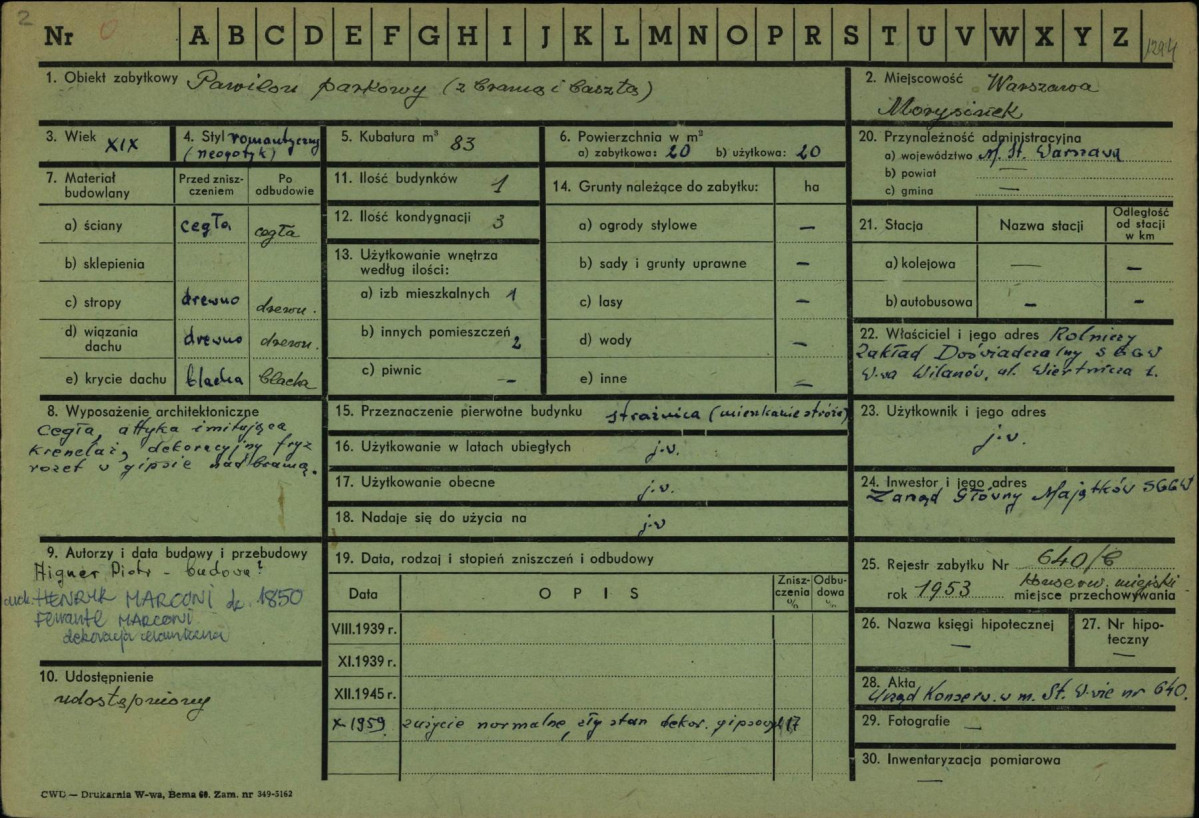 2
Nr 6 A B C D E F G H I J K L M N O P R S T U V W X Y Z
1. Obiekt zabytkowy Pawilon parkowy (z bramą i basztą)
2. Miejscowość Warszawa
Morysinek
3. Wiek XIX
4. Styl romantyczny
(neogotyk)
5. Kubatura m³ 83
6. Powierzchnia w m²
a) zabytkowa: 20 b) użytkowa: 20
20. Przynależność administracyjna
a) województwo M. St. Warszawa
b) powiat —
c) gmina —
7. Materiał budowlany
Przed zniszczeniem
Po odbudowie
a) ściany cegła cegła
b) sklepienia
c) stropy drewno drewn.
d) wiązania dachu drewno drewn.
e) krycie dachu blacha blacha
11. Ilość budynków 1
12. Ilość kondygnacji 3
13. Użytkowanie wnętrza
według ilości:
a) izb mieszkalnych 1
b) innych pomieszczeń 2
c) piwnic —
14. Grunty należące do zabytku: ha
a) ogrody stylowe —
b) sady i grunty uprawne —
c) lasy —
d) wody —
e) inne —
21. Stacja Nazwa stacji Odległość od stacji w km
a) kolejowa — —
b) autobusowa — —
22. Właściciel i jego adres Rolniczy
Zakład Doświadczalny SGGW
W-wa Wilanów, ul. Wiertnicza 1.
8. Wyposażenie architektoniczne
cegła, attyka imitująca
krenelaż, dekoracyjny fryz
rozet w gipsie nad bramą.
15. Przeznaczenie pierwotne budynku strażnica (mieszkanie stróża)
16. Użytkowanie w latach ubiegłych j.w.
17. Użytkowanie obecne j.w.
18. Nadaje się do użycia na j.w
23. Użytkownik i jego adres
j.w.
24. Inwestor i jego adres
Zarząd Główny Majątków SGGW
9. Autorzy i data budowy i przebudowy
Aigner Piotr – budowa?
HENRYK MARCONI ok. 1850
Ferrante MARCONI
dekoracja ceramiczna
10. Udostępnienie
udostępniony
19. Data, rodzaj i stopień zniszczeń i odbudowy
Data OPIS Zniszczenia % Odbudowa %
VIII.1939 r.
XI.1939 r.
XII.1945 r.
X 1959. zużycie normalne, zły stan dekor. gipsowych 17
25. Rejestr zabytku Nr 640/6
rok 1953 Konserw. miejski
miejsce przechowywania
26. Nazwa księgi hipotecznej
—
27. Nr hipoteczny
—
28. Akta
Urząd Konserw. w m. St. W-wie nr 640.
29. Fotografie —
30. Inwentaryzacja pomiarowa
—
CWD — Drukarnia W-wa, Bema 60. Zam. nr 349-5162